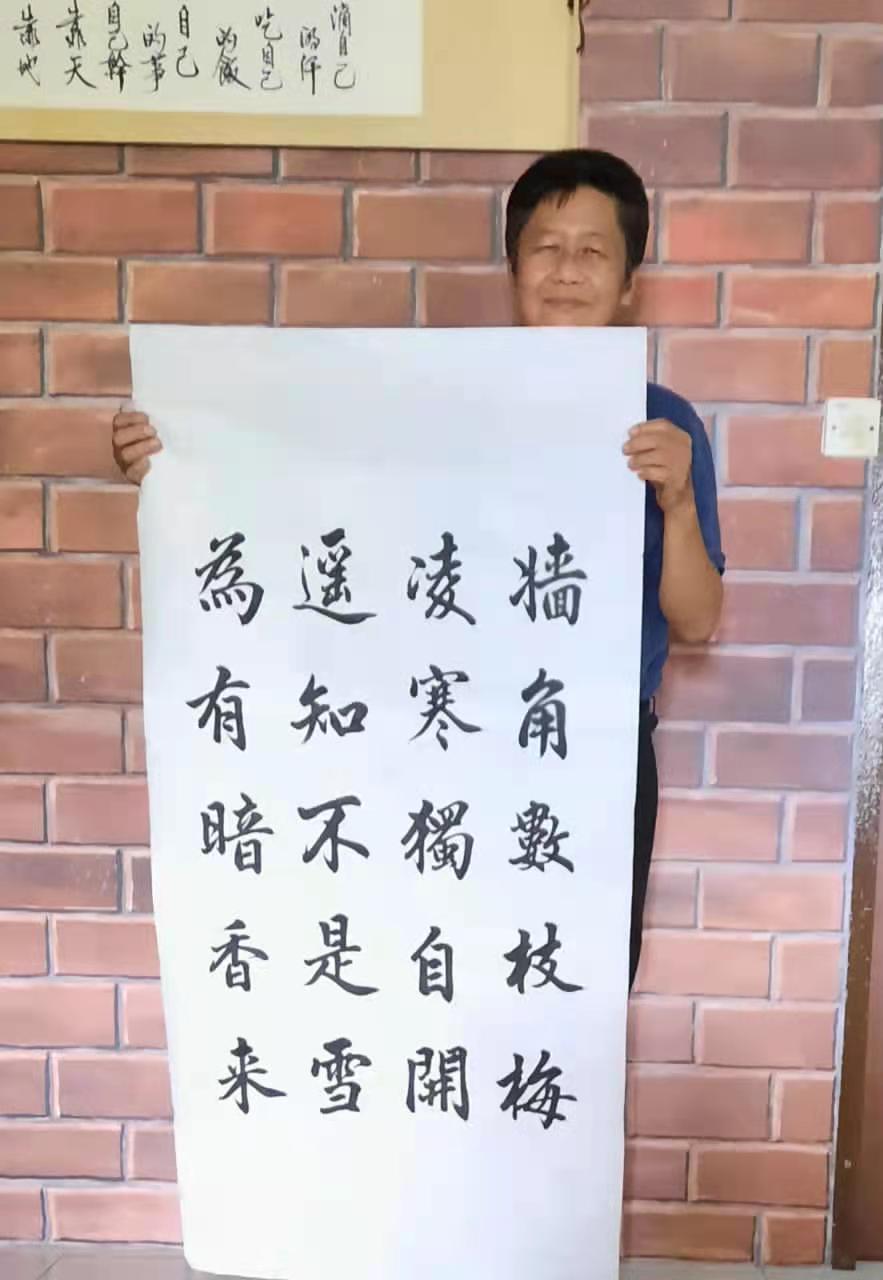 滴自己
的汗
吃自己
的飯
自己
的事
自己幹
靠天
靠地
墙角數枝梅
凌寒獨自開
遥知不是雪
為有暗香来